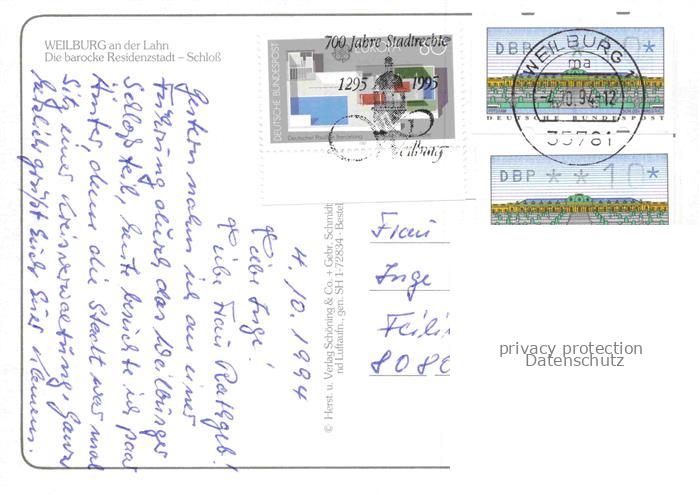 WEILBURG an der Lahn
Die barocke Residenzstadt – Schloß
700 Jahre Stadtrechte
1295 1995
Weilburg
DEUTSCHE BUNDESPOST
EUROPA 60
Deutscher Pavillon Barcelona
DBP * *
WEILBURG 1
ma
4.10.94-12
35781
DEUTSCHE BUNDESPOST
DBP * * 10*
© Herst. u. Verlag Schöning & Co. + Gebr. Schmidt
nd Luftaufn., gen. SH 1-72834 - Bestel
4.10.1994
Liebe Inge!
Liebe Frau Rathgeb!
Gestern nahm ich an einer
Führung durch das Weilburger
Schloß teil, heute besuchte ich paar
Ämter, denn die Stadt war mal
Sitz einer Kreisverwaltung. Ganz
herzlich grüßt Euch Euer Klemens.
Frau
Inge
808
privacy protection
Datenschutz